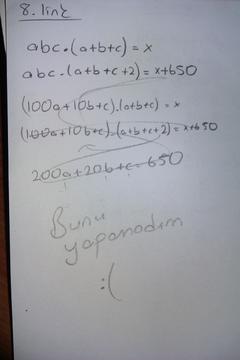 8. link
abc.(a+b+c) = x
abc.(a+b+c+2) = x+650
(100a+10b+c).(a+b+c) = x
(100a+10b+c).(a+b+c+2) = x+650
200a+20b+c = 650
Bunu
yapamadım
:(